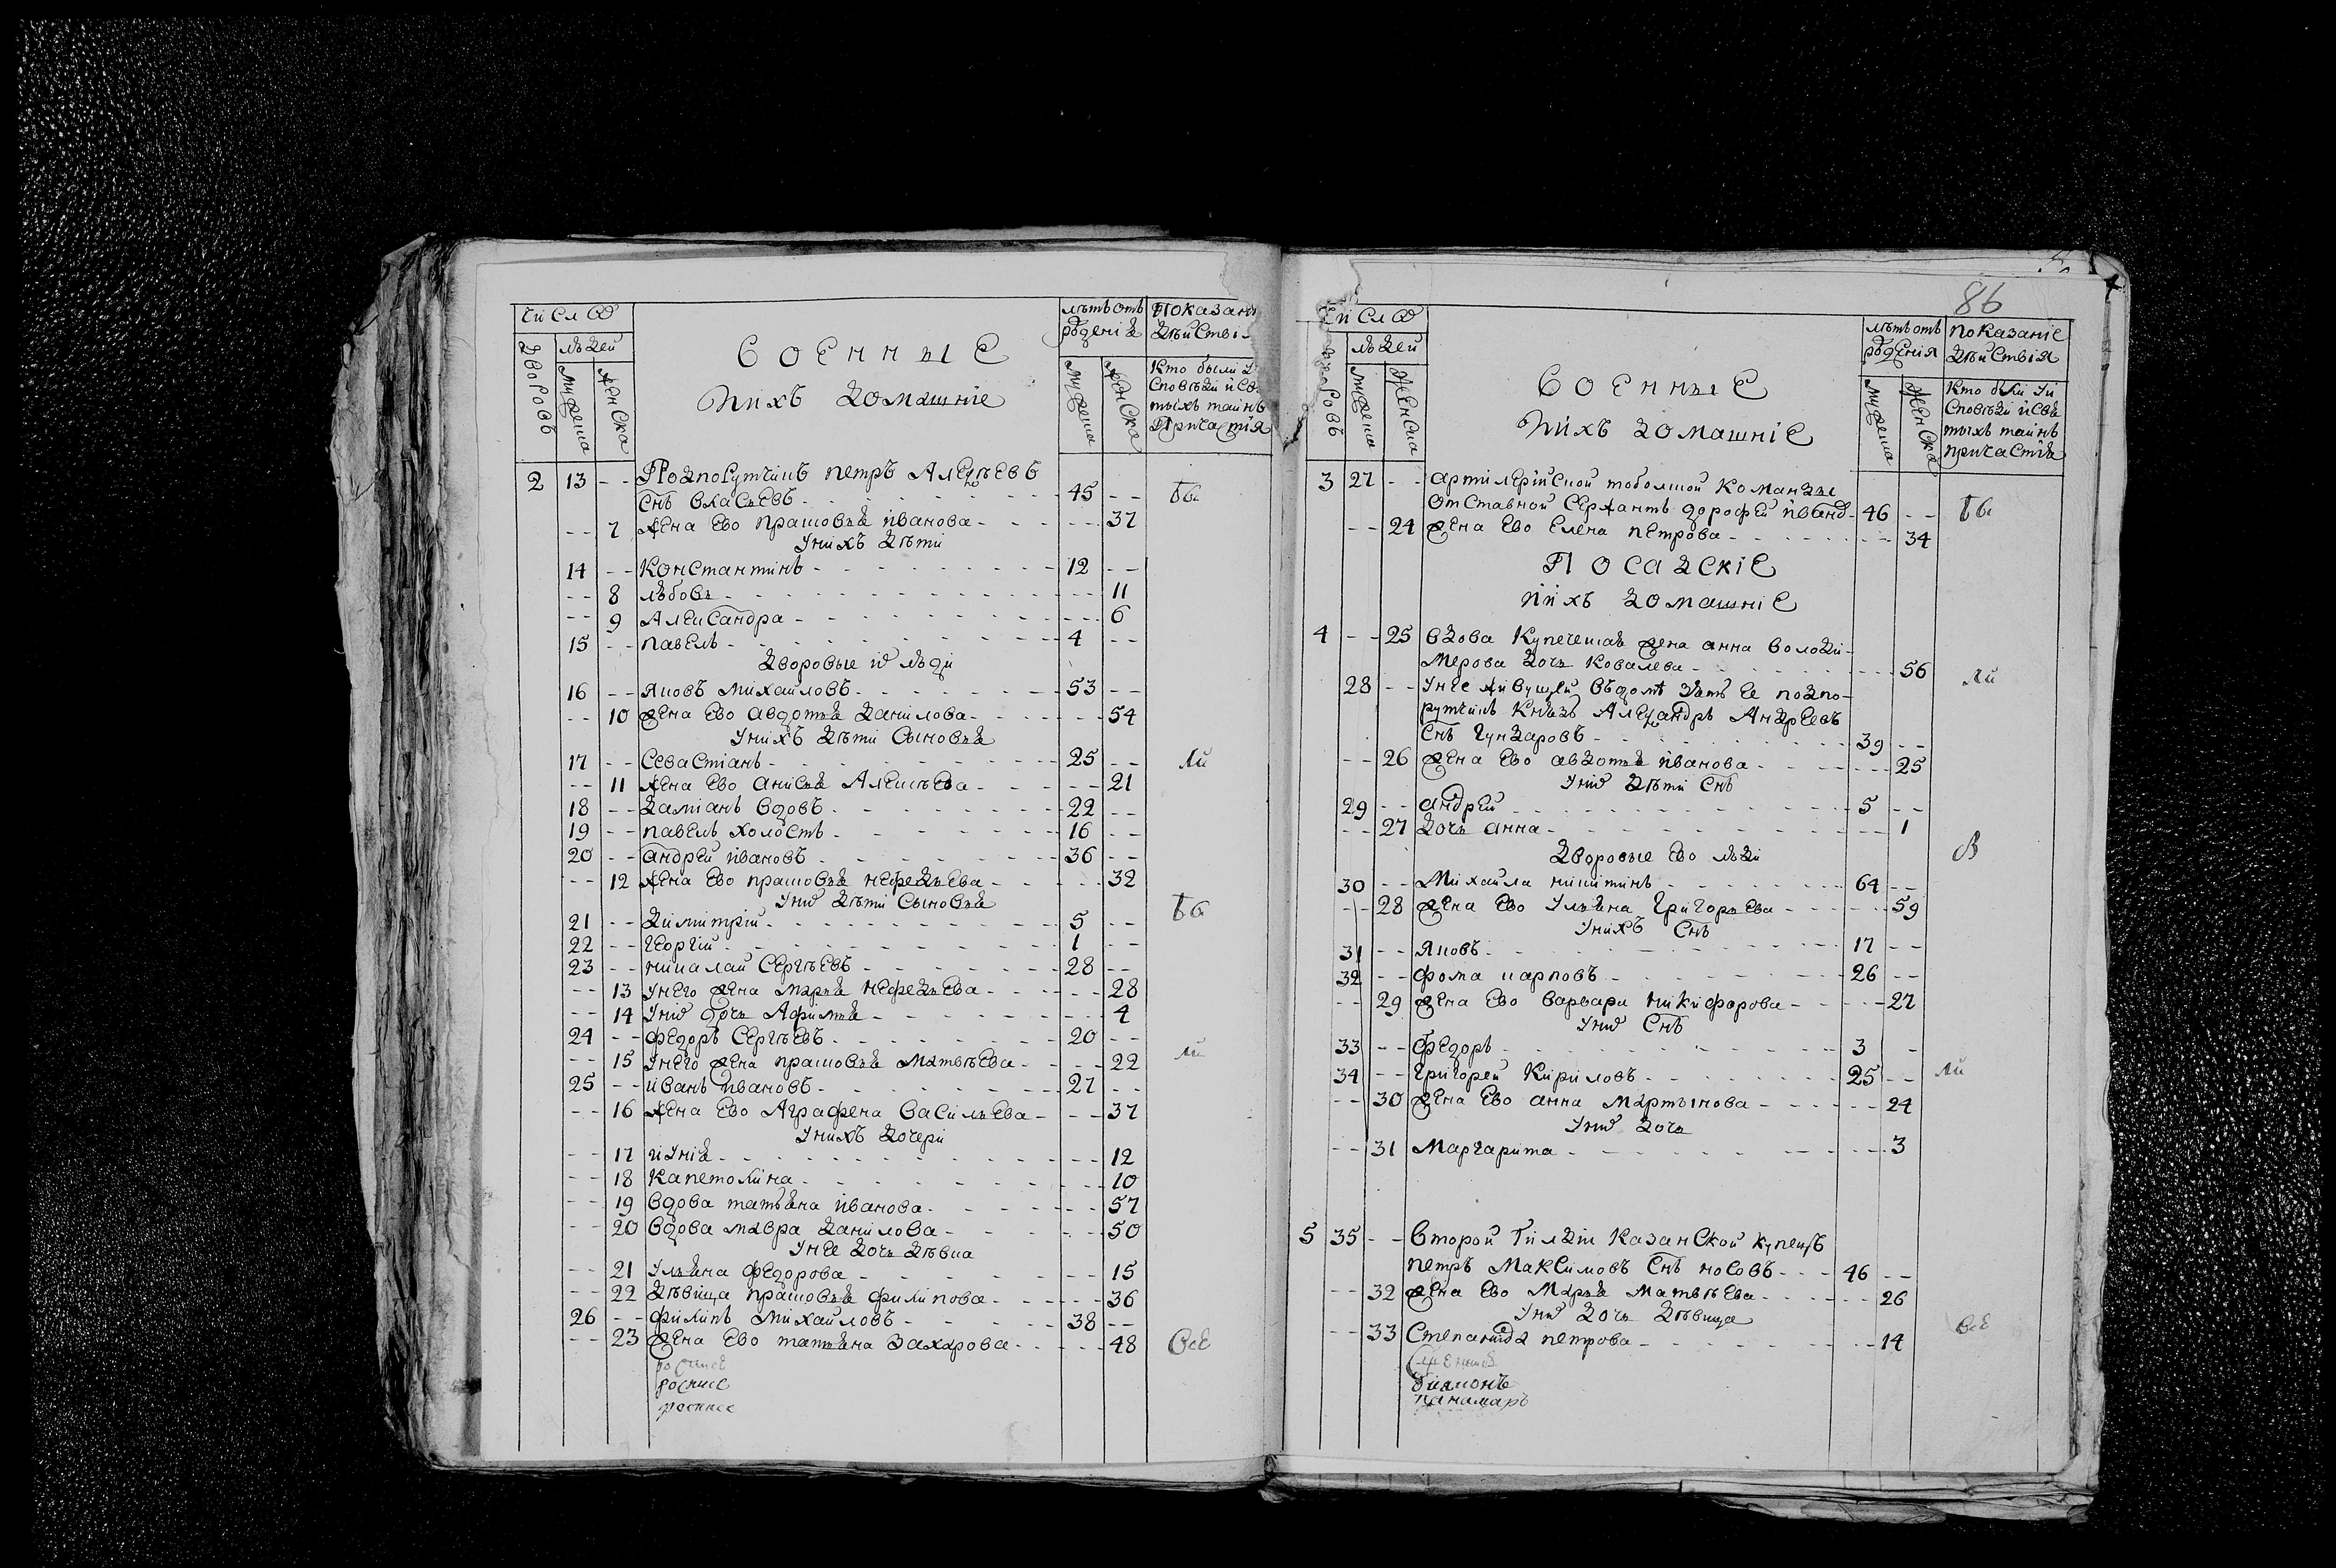 Число
лѣтъ отъ
показан
Дворовъ
людей
рожденія
дѣйстві
Военные
мужеска
женска
мужеска
женска
Кто были у
споведи и свя
тыхъ таинъ
причастія
ихъ домашніе
2 13 -- Подпорутчикъ петръ Алеѯѣевъ
снъ власьевъ - 45 -- бы
-- 7 жена ево прасковья иванова - -- 37
у нихъ дѣти
14 -- Константинъ - 12 --
-- 8 любовь - -- 11
-- 9 Александра - -- 6
15 -- павелъ - 4 --
дворовые их люди
16 -- яковъ михаиловъ - 53 --
-- 10 жена ево авдотья данилова - -- 54
у нихъ дѣти сыновья
17 -- Севастіанъ - 25 -- ли
-- 11 жена ево анисья Алексѣева - -- 21
18 -- даміанъ вдовъ - 22 --
19 -- павелъ холостъ - 16 --
20 -- андрей ивановъ - 36 --
-- 12 жена ево прасковья нефедьева - -- 32
у них дѣти сыновья бы
21 -- димитрій - 5 --
22 -- георгій - 1 --
23 -- николай Сергѣевъ - 28 --
-- 13 у него жена марья нефедьева - -- 28
-- 14 у них дочь Афимья - -- 4
24 -- федоръ Сергѣевъ - 20 --
-- 15 у него жена прасковья матвѣева - -- 22 ли
25 -- иванъ ивановъ - 27 --
-- 16 жена ево Аграфена васильева - -- 37
у нихъ дочери
-- 17 - -- 12
-- 18 капетолина - -- 10
-- 19 вдова татьяна иванова - -- 57
-- 20 вдова мавра данилова - -- 50
у нее дочь дѣвка
-- 21 ульяна федорова - -- 15
-- 22 дѣвица прасковья филипова - -- 36
26 -- филипъ михаиловъ - 38 --
-- 23 жена ево татьяна захарова - -- 48 всѣ
росписе
росписе
86
Число
лѣтъ отъ
показаніе
дворовъ
людей
рожденія
дѣйствія
Военные
мужеска
женска
мужеска
женска
Кто были у и
споведи и свя
тыхъ таинъ
причастія
и ихъ домашніе
3 27 -- артилерійской тобольской команды
отставной сержантъ дорофей иванов - 46 -- бы
-- 24 жена ево елена петрова - -- 34
Посадскіе
и ихъ домашніе
4 -- 25 вдова купеческая жена анна володи-
мерова дочь ковалева - -- 56 ли
28 -- у нее живущей въ домѣ зять ее подпо-
рутчикъ князь Алеѯандръ Андреевъ
снъ гундаровъ - 39 --
-- 26 жена ево авдотья иванова - -- 25
у них дѣти снъ
29 -- андрей - 5 --
-- 27 дочь анна - -- 1
дворовые ево люди в
30 -- михаила никитинъ - 64 --
-- 28 жена ево ульяна григорьева - -- 59
у нихъ снъ
31 -- яковъ - 17 --
32 -- фома карповъ - 26 --
-- 29 жена ево варвара никифорова - -- 27
у них снъ
33 -- федоръ - 3 -
34 -- григорей кириловъ - 25 -- ли
-- 30 жена ево анна мартынова - -- 24
у них дочь
-- 31 маргарита - -- 3
5 35 -- второй гилдіи казанской купецъ
петръ максимовъ снъ носовъ - 46 --
-- 32 жена ево марья матвѣева - -- 26
у них дочь дѣвица
-- 33 Степанида петрова - -- 14 всѣ
дияконъ
панамарь